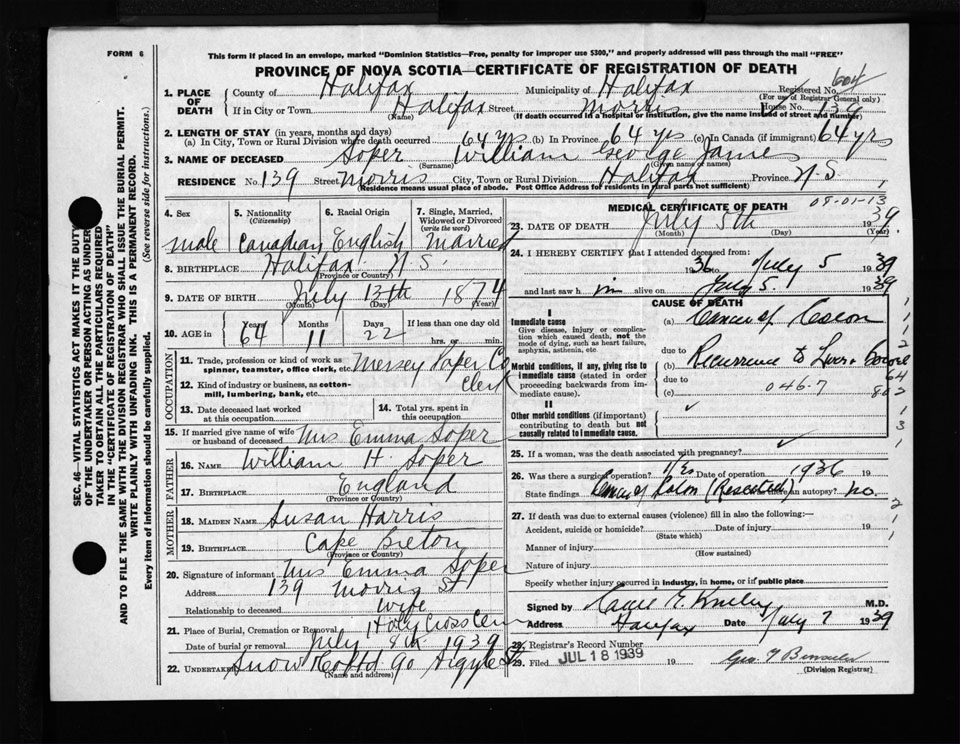 FORM 6
This form if placed in an envelope, marked "Dominion Statistics—Free, penalty for improper use $300," and properly addressed will pass through the mail "FREE"
PROVINCE OF NOVA SCOTIA—CERTIFICATE OF REGISTRATION OF DEATH
SEC. 46—VITAL STATISTICS ACT MAKES IT THE DUTY
OF THE UNDERTAKER OR PERSON ACTING AS UNDER-
TAKER TO OBTAIN ALL THE PARTICULARS REQUIRED
IN THE "CERTIFICATE OF REGISTRATION OF DEATH"
AND TO FILE THE SAME WITH THE DIVISION REGISTRAR WHO SHALL ISSUE THE BURIAL PERMIT.
WRITE PLAINLY WITH UNFADING INK. THIS IS A PERMANENT RECORD.
Every item of information should be carefully supplied. (See reverse side for instructions.)
1. PLACE OF DEATH County of Halifax Municipality of Halifax Registered No. 604
(For use of Registrar General only)
If in City or Town Halifax Street Morris House No. 139
(Name) (If death occurred in a hospital or institution, give the name instead of street and number)
2. LENGTH OF STAY (in years, months and days)
(a) In City, Town or Rural Division where death occurred 64 yrs (b) In Province 64 yrs (c) In Canada (if immigrant) 64 yrs
3. NAME OF DECEASED Soper William George James
(Surname) (Given name or names)
RESIDENCE No. 139 Street Morris City, Town or Rural Division Halifax Province N.S.
(Residence means usual place of abode. Post Office Address for residents in rural parts not sufficient)
4. Sex
male
5. Nationality (Citizenship)
Canadian
6. Racial Origin
English
7. Single, Married, Widowed or Divorced (write the word)
Married
8. BIRTHPLACE Halifax N.S.
(Province or Country)
9. DATE OF BIRTH July 13th 1874
(Month) (Day) (Year)
10. AGE in Years Months Days If less than one day old
64 11 22 hrs. or min.
OCCUPATION
11. Trade, profession or kind of work as spinner, teamster, office clerk, etc. Mersey Paper Co
12. Kind of industry or business, as cotton-mill, lumbering, bank, etc. Clerk
13. Date deceased last worked at this occupation
14. Total yrs. spent in this occupation
15. If married give name of wife or husband of deceased Mrs Emma Soper
FATHER
16. NAME William H. Soper
17. BIRTHPLACE England
(Province or Country)
MOTHER
18. MAIDEN NAME Susan Harris
19. BIRTHPLACE Cape Breton
(Province or Country)
20. Signature of informant Mrs Emma Soper
Address 139 Morris St
Relationship to deceased Wife
21. Place of Burial, Cremation or Removal Holy Cross Cem
Date of burial or removal July 8th 1939
22. UNDERTAKER Snow Co Ltd 90 Argyle St.
(Name and address)
MEDICAL CERTIFICATE OF DEATH 08-01-13
23. DATE OF DEATH July 5th 1939
(Month) (Day) (Year)
24. I HEREBY CERTIFY that I attended deceased from:
1936 to July 5 1939
and last saw him alive on July 5. 1939
CAUSE OF DEATH
I
Immediate cause
Give disease, injury or complication which caused death, not the mode of dying, such as heart failure, asphyxia, asthenia, etc.
(a) Cancer of Colon
due to
Morbid conditions, if any, giving rise to immediate cause (stated in order proceeding backwards from immediate cause).
(b) Recurrence to Liver
due to
(c) 046-7
64
802
II
Other morbid conditions (if important) contributing to death but not causally related to immediate cause.
25. If a woman, was the death associated with pregnancy?
26. Was there a surgical operation? Yes Date of operation 1936 19
State findings Cancer of Colon (Resected) Was there an autopsy? no.
27. If death was due to external causes (violence) fill in also the following:—
Accident, suicide or homicide? Date of injury 19
(State which)
Manner of injury
(How sustained)
Nature of injury
Specify whether injury occurred in industry, in home, or in public place
Signed by M.D.
Address Halifax Date July 7 1939
28. Registrar's Record Number
29. Filed JUL 18 1939 19
(Division Registrar)